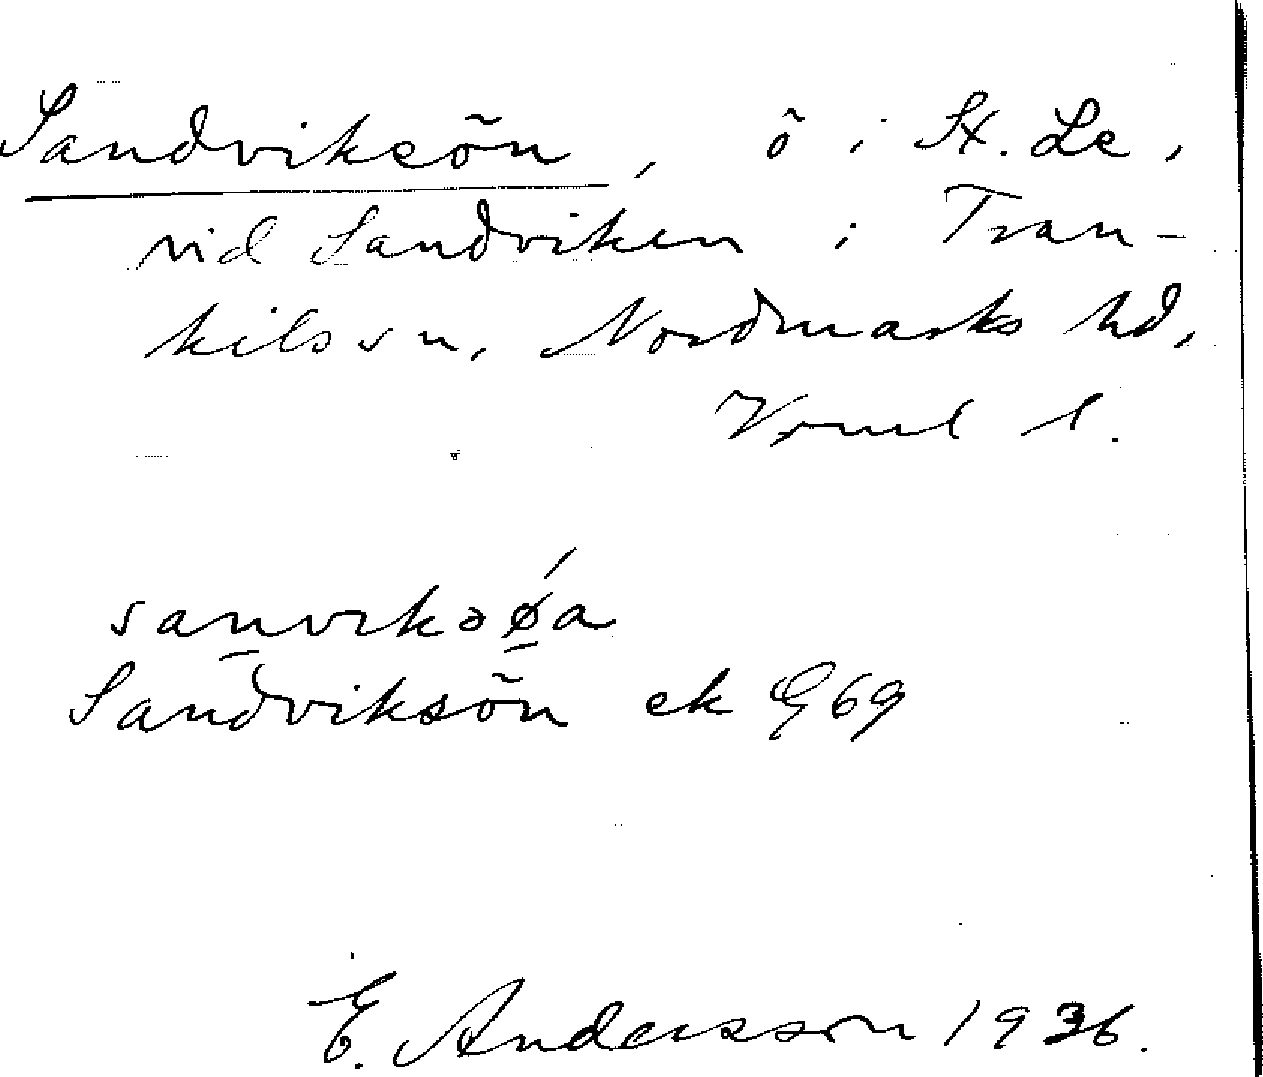 Sandviksön, ö i St. Le,
vid Sandviken i Tran-
kils sn, Nordmarks hd,
Vrml l.
sanvikəǿa
Sandviksön ek G 69
E. Andersson 1936.